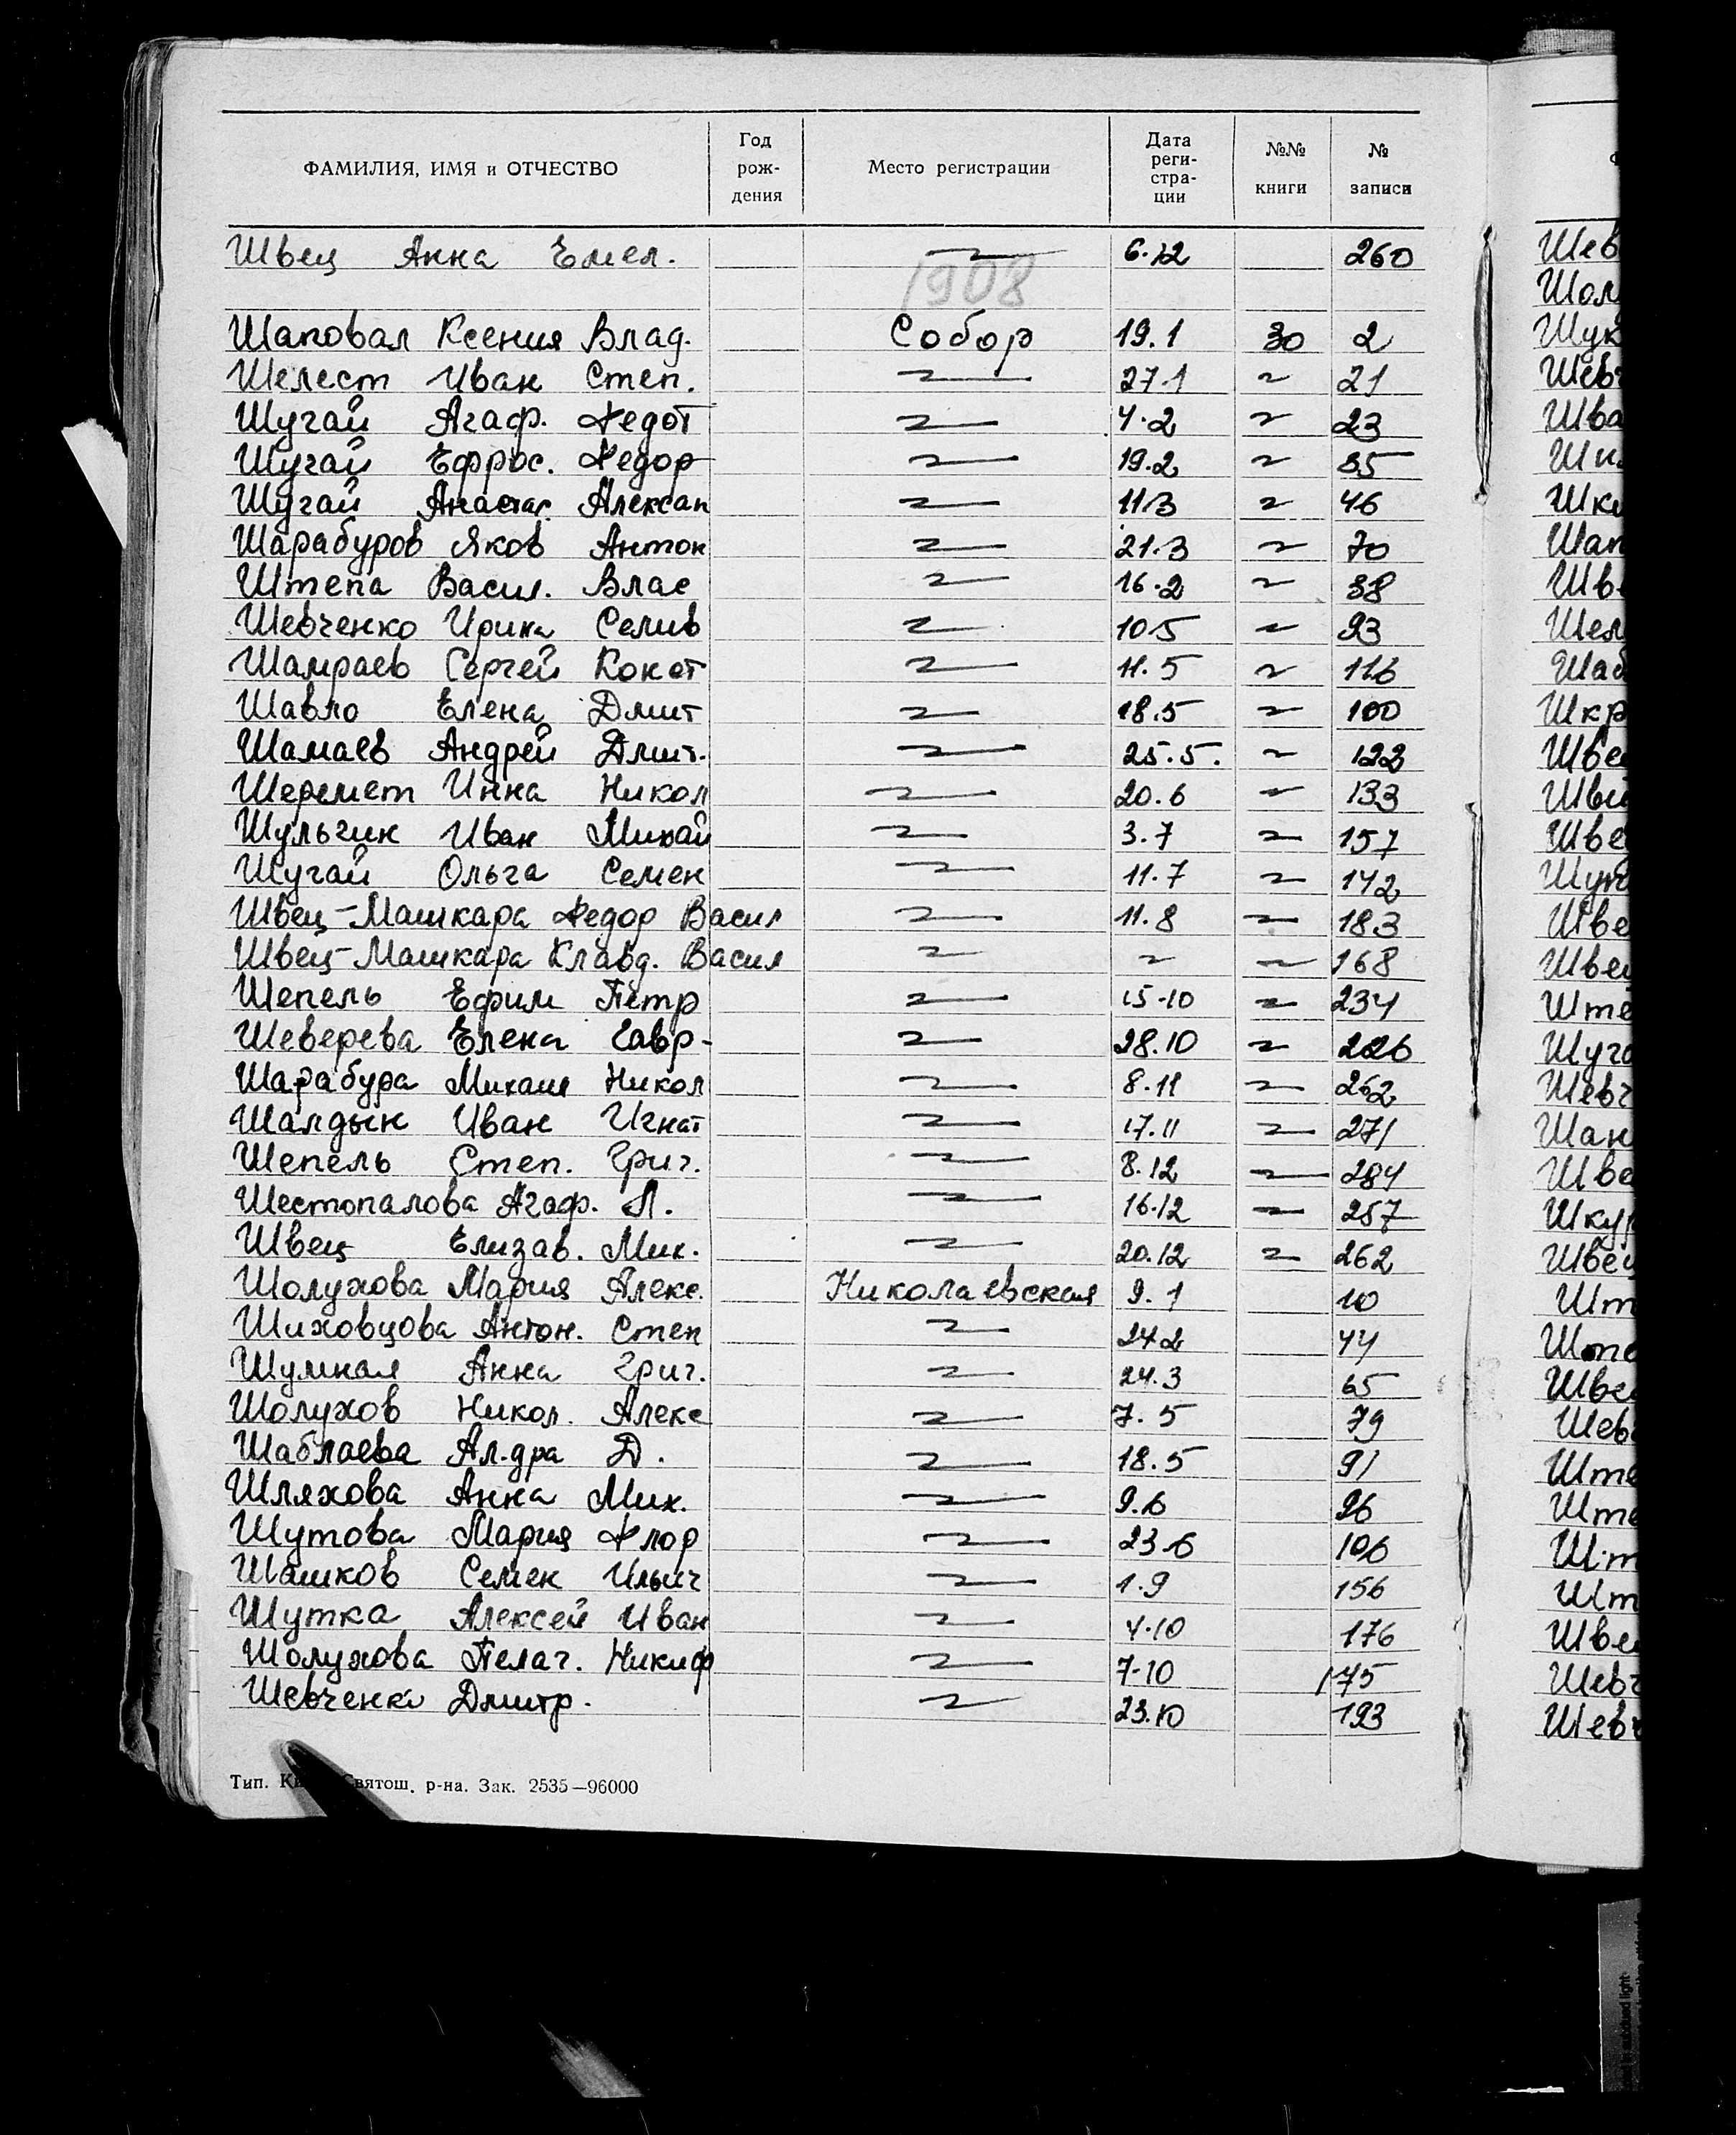 ФАМИЛИЯ, ИМЯ и ОТЧЕСТВО Год рож- дения Место регистрации Дата реги- стра- ции №№ книги № записи
Швец Анна Емел. 〃 6.12 260
1908
Шаповал Ксения Влад. Собор 19.1 30 2
Шелест Иван Степ. 〃 27.1 〃 21
Шугай Агаф. Федот 〃 4.2 〃 23
Шугай Ефрос. Федор 〃 19.2 〃 35
Шугай Анастас. Алексан 〃 11.3 〃 46
Шарабуров Яков Антон 〃 21.3 〃 70
Штепа Васил. Влас 〃 16.2 〃 38
Шевченко Ирина Селив 〃 10.5 〃 93
Шамраев Сергей Конст 〃 11.5 〃 116
Шавло Елена Дмит 〃 18.5 〃 100
Шамаев Андрей Дмит. 〃 25.5. 〃 122
Шеремет Инна Никол 〃 20.6 〃 133
Шульгин Иван Михай 〃 3.7 〃 157
Шугай Ольга Семен 〃 11.7 〃 142
Швец-Машкара Федор Васил 〃 11.8 〃 183
Швец-Машкара Клавд. Васил 〃 〃 〃 168
Шепель Ефим Петр 〃 15-10 〃 234
Шеверева Елена Гавр- 〃 28.10 〃 226
Шарабура Михаил Никол 〃 8.11 〃 262
Шалдын Иван Игнат 〃 17.11 〃 271
Шепель Степ. Григ. 〃 8.12 〃 284
Шестопалова Агаф. П. 〃 16.12 〃 257
Швец Елизав. Мих. 〃 20.12 〃 262
Шолухова Мария Алекс. Николаевская 9.1 10
Шиховцова Антон. Степ 〃 24.2 44
Шумная Анна Григ. 〃 24.3 65
Шолухов Никол. Алекс 〃 7.5 79
Шаблаева Ал.дра Д. 〃 18.5 91
Шляхова Анна Мих. 〃 9.6 96
Шутова Мария Флор 〃 23.6 106
Шашков Семен Ильич 〃 1.9 156
Шутка Алексей Иван 〃 4.10 176
Шолухова Пелаг. Никиф 〃 7-10 175
Шевченко Дмитр. 〃 23.10 193
Тип. Святош. р-на. Зак. 2535—96000